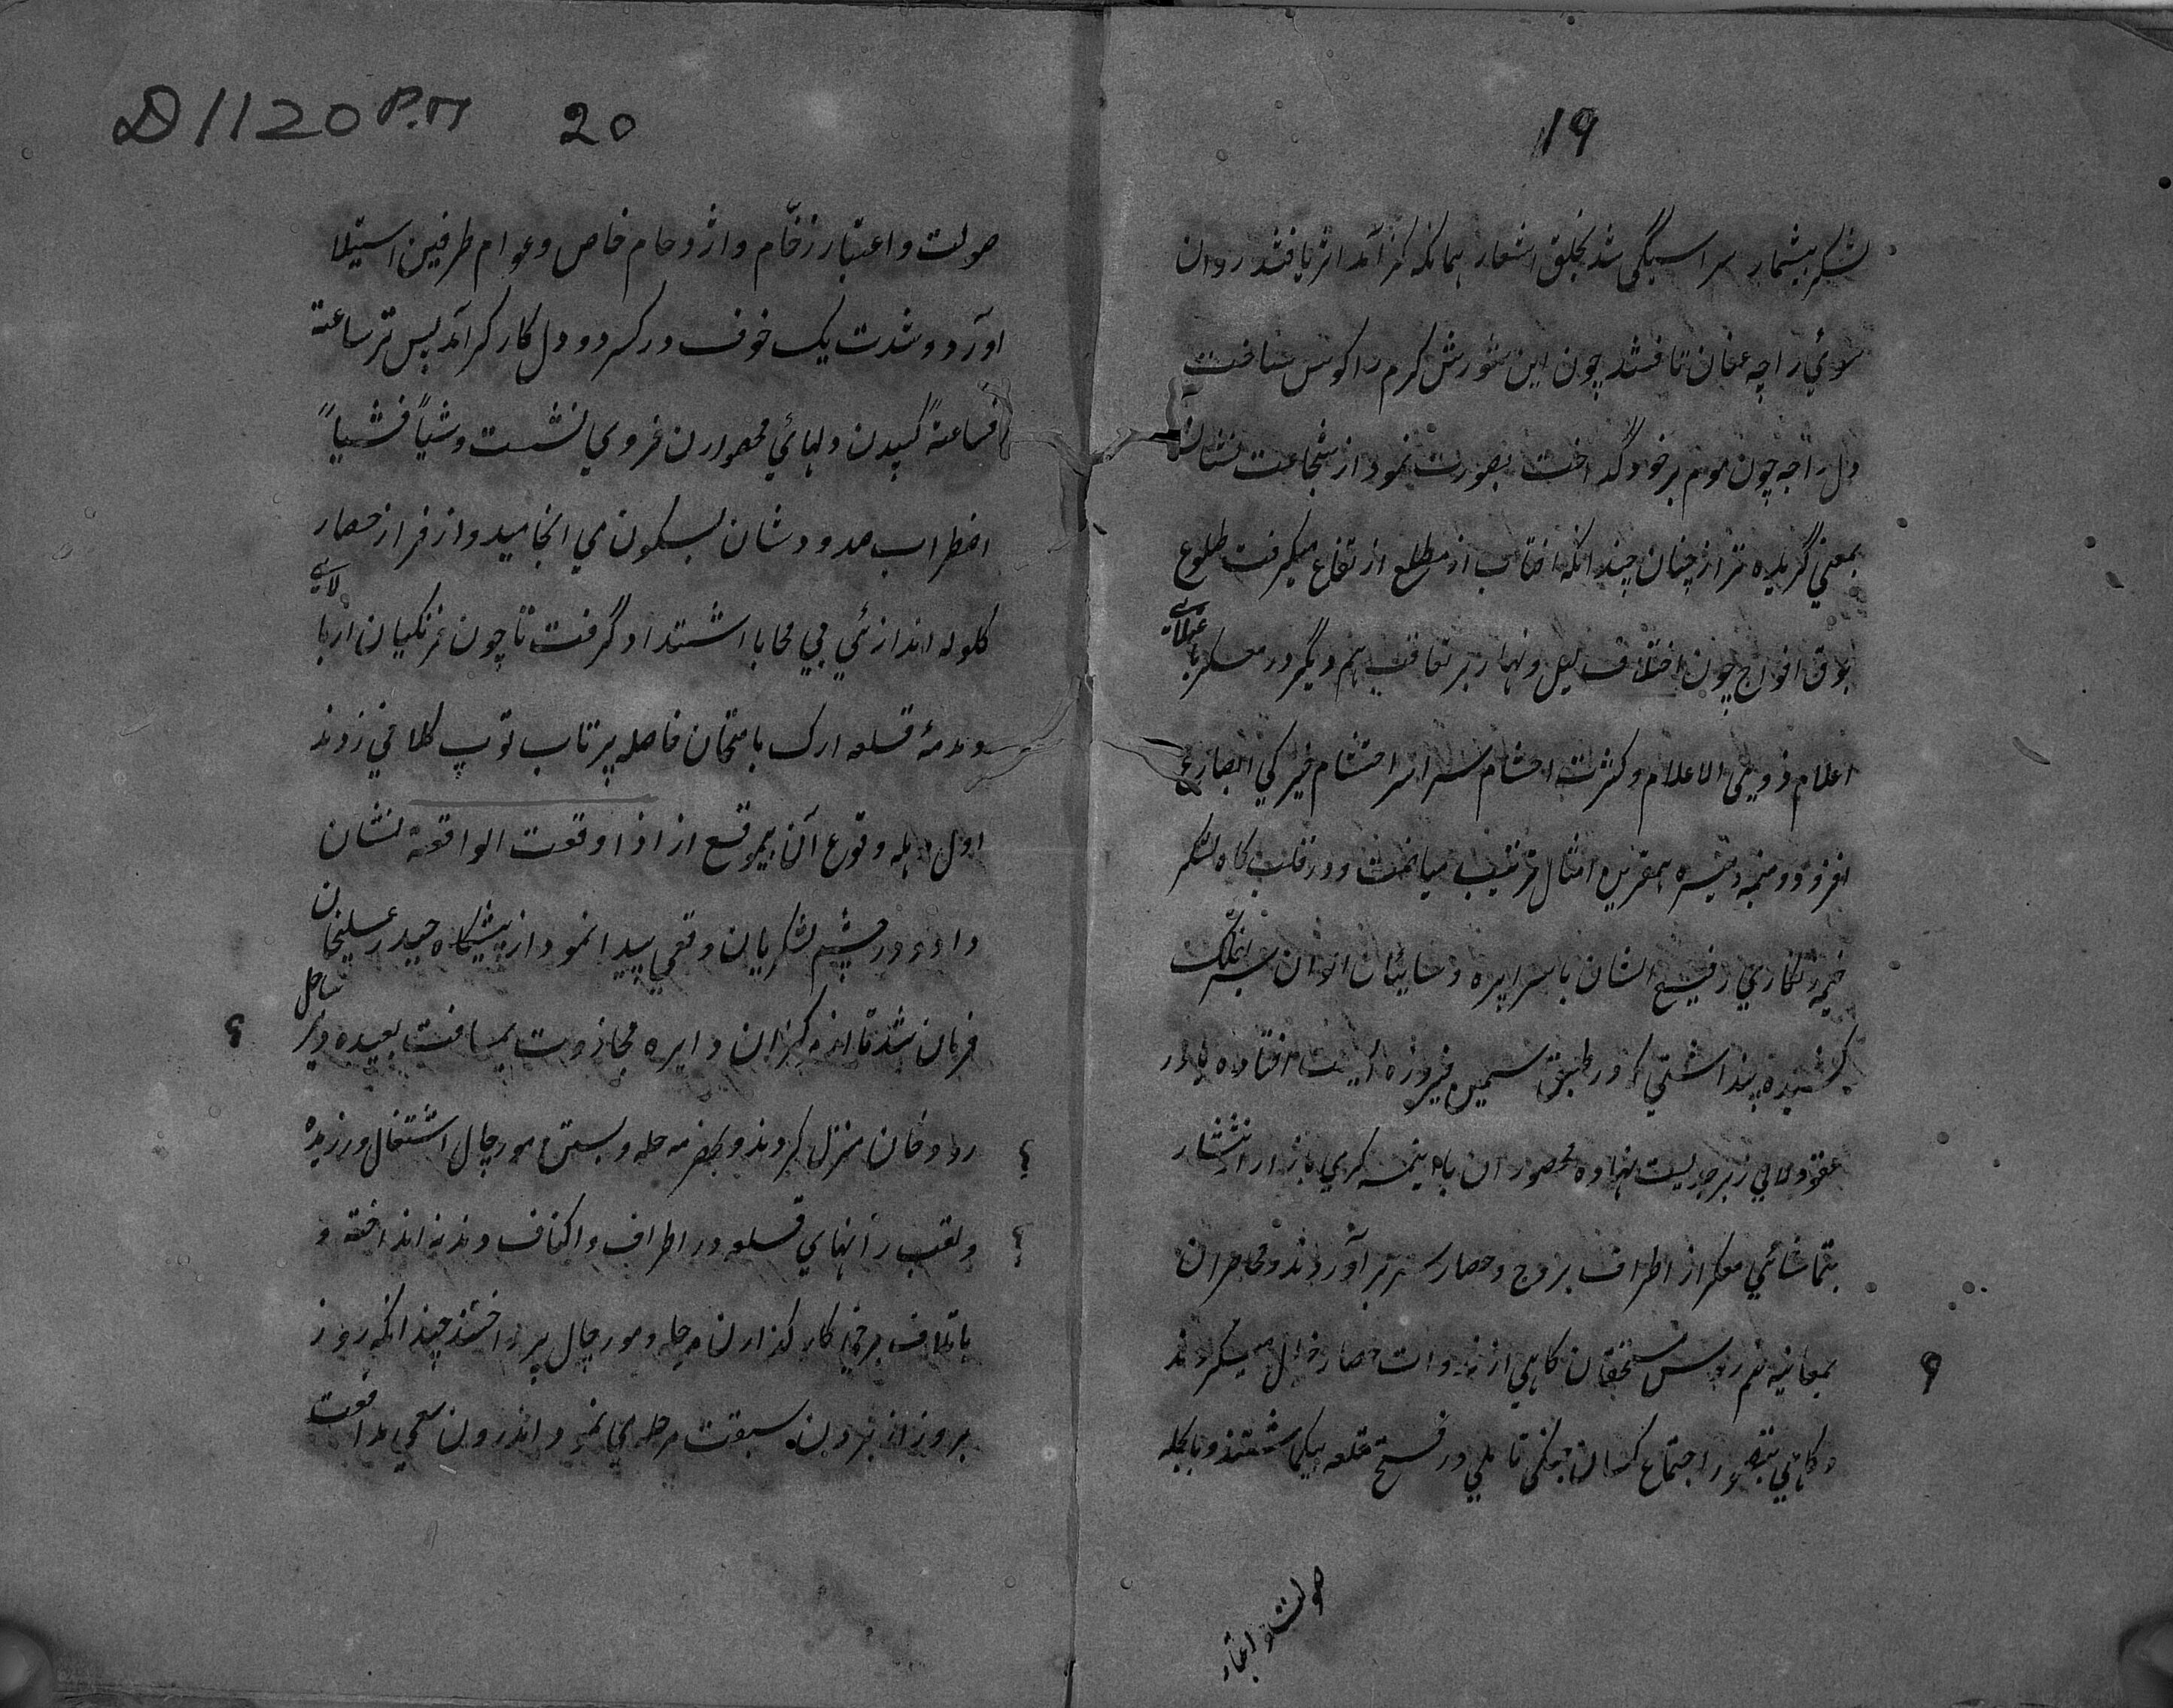 19
لشکر بیشمار سراسیگی شد بخلق اشعار همانکه کز آمد اثر یافتند روان
سوئي راجه عنان تافتند چون این شورش کرم را کوس ساخت
دل راجه چون موم بر خود گداخت بصورت نمود از شجاعت نشان
بمعني گریده تر از چنان چندانکه افتاب از مطلع ارتفاع میکرفت طلوع
بوق افواج چون اختلاف لیل و نهار بر تعاقب هم دیگر در معسکر با
اعلام ذوي الاعلام و کثرت احشام سراسر احتشام خیرکي ابصار مي
افزود و میمنه و میسره بهترین امثال ترتیب میافت و در قلب کاه لشکر
خیمه زنکاري رفیع الشان با سراپرده و سایبان الوان سر بفلک
کشیده پنداشتي که در طبق سیمین فیروزه ایست افتاده یا در
حقه ولایي زبرجدیست نهاده محصوران با این همه کري بازار انتشار
بتماشائي معسکر از اطراف بروج و حصار سر بر آوردند و محاصران
بمعاینه هم روس مستحفظان کاهي از ذروات حصار خیال میکردند
و کاهي بتصور اجتماع کسان جنکي تاملي در فتح قلعه میکماشتند و بالجمله
صولت و اعتبار
D 1120 P.M 20
صولت و اعتبار زخّام و اژدحام خاص و عوام طرفین استیلا
اورد و شدت یک خوف در کسر دو دل کار کر آمد پس تر ساعة
فساعةً کپیدن دلهائي محصورن فروي نشست و شیاً فشیاً
اضطراب صدودشان بسکون مي انجامید و از فراز حصار
کلوله اندازئي بي محابا اشتداد گرفت تا چون فرنکیان از بالاي
دمدمهٔ قلعه ارک بامتحان فاصله پرتاب توپ کلاني زدند
اول وهله وقوع آن بموقع از اذا وقعت الواقعة نشان
داده در چشم لشکریان وقعي پیدا نمود از پیشکاه حیدر علیخان
فرمان شد تا از کزان دایره محاذوت بمسافت بعیده و بر ساحل
رودخان منزل کردند و بحفر مرحله و بستن مورچال اشتغال ورزیده
و نقب رانهاي قلعه در اطراف و اکناف دندنه انداخته و
باتفاق برخي کار کذاران مرحله و مورچال پرداختند چندانکه روز
بروز از بیرون سبقت مرحله مي نمود و اندرون سعي مدافعت